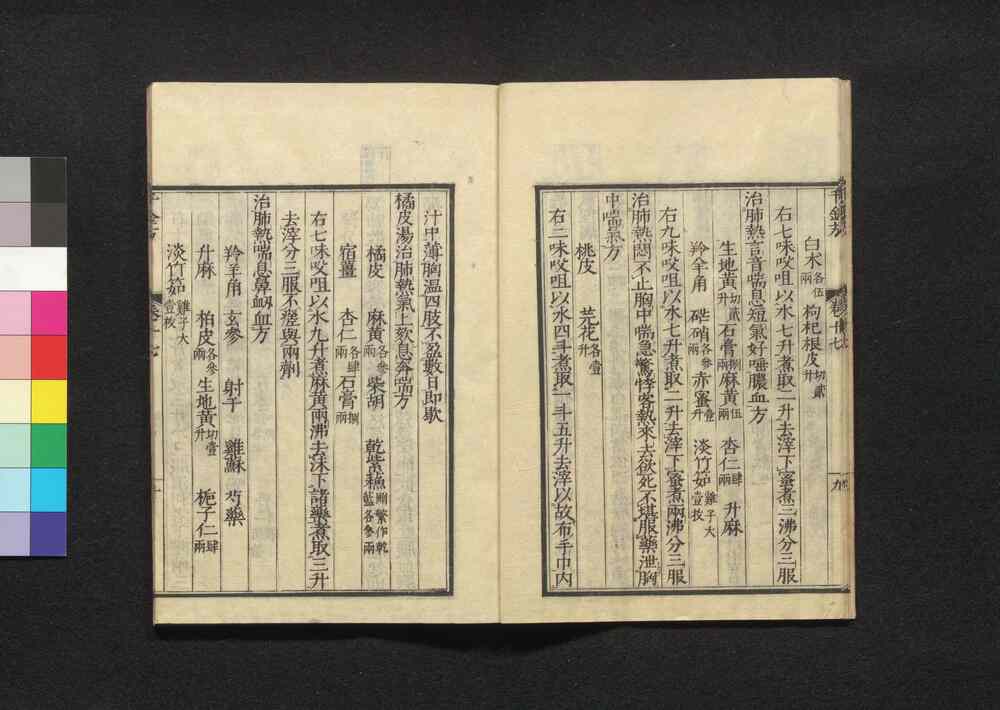 白朮各伍兩 枸杞根皮切貳升
右七味㕮咀以水七升煮取二升去滓下蜜煮三沸分三服
治肺熱言音喘息短氣好唾膿血方
生地黃切貳升 石膏捌兩 麻黃伍兩 杏仁肆兩 升麻
羚羊角 芒硝各參兩 赤蜜壹升 淡竹茹雞子大壹枚
右九味㕮咀以水七升煮取二升去滓下蜜煮兩沸分三服
治肺熱悶不止胸中喘急驚悸客熱來去欲死不堪服藥泄胸
中喘氣方
桃皮 芫花各壹升
右二味㕮咀以水四斗煮取一斗五升去滓以故布手巾內
汁中薄胸溫四肢不盈數日即歇
橘皮湯治肺熱氣上欬息奔喘方
橘皮 麻黃各參兩 柴胡 乾紫蘇 各參兩
宿薑 杏仁各肆兩 石膏捌兩
右七味㕮咀以水九升煮麻黃兩沸去沫下諸藥煮取三升
去滓分三服不瘥與兩劑
治肺熱喘息鼻衄血方
羚羊角 玄參 射干 雞蘇 芍藥
升麻 柏皮各參兩 生地黃切壹升 梔子仁肆兩
淡竹茹雞子大壹枚